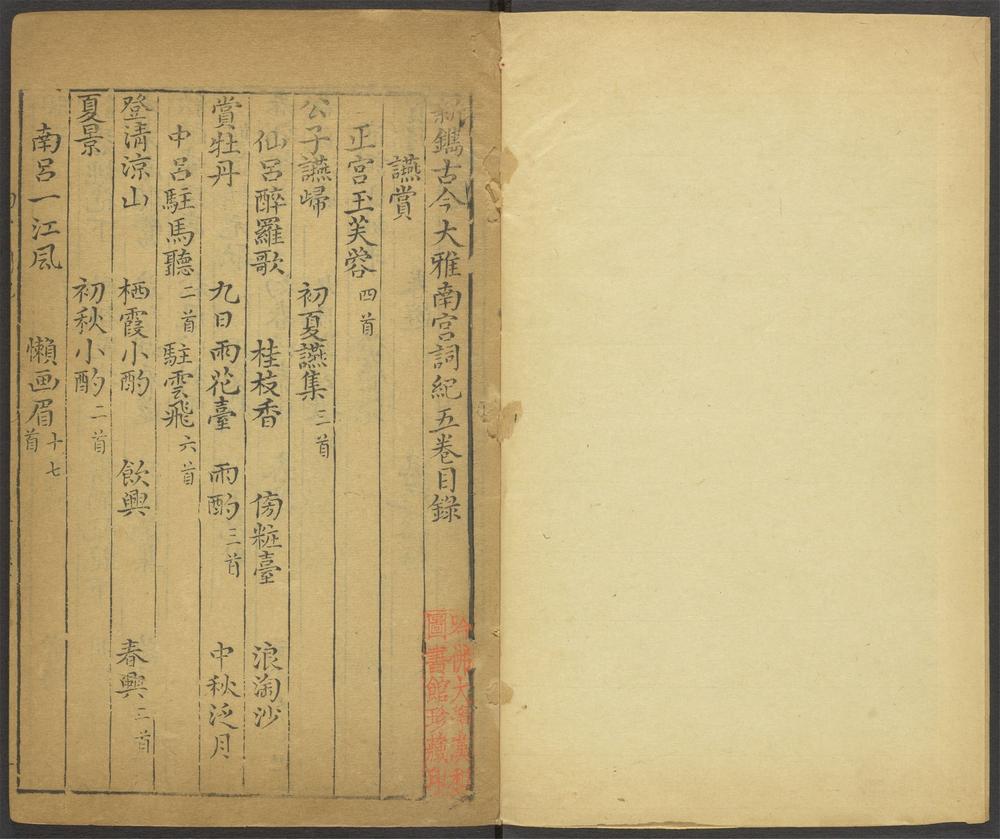 新鐫古今大雅南宮詞紀五卷目錄
讌賞
正宮玉芙蓉四首
公子讌歸 初夏讌集三首
仙呂醉羅歌 桂枝香 傍粧臺 浪淘沙
賞牡丹 九日雨花臺 雨酌三首 中秋泛月
中呂駐馬聽二首 駐雲飛六首
登清涼山 栖霞小酌 飲興 春興二首
夏景 初秋小酌二首
南呂一江風 懶画眉十七首
哈佛大學漢和
圖書館珍藏印